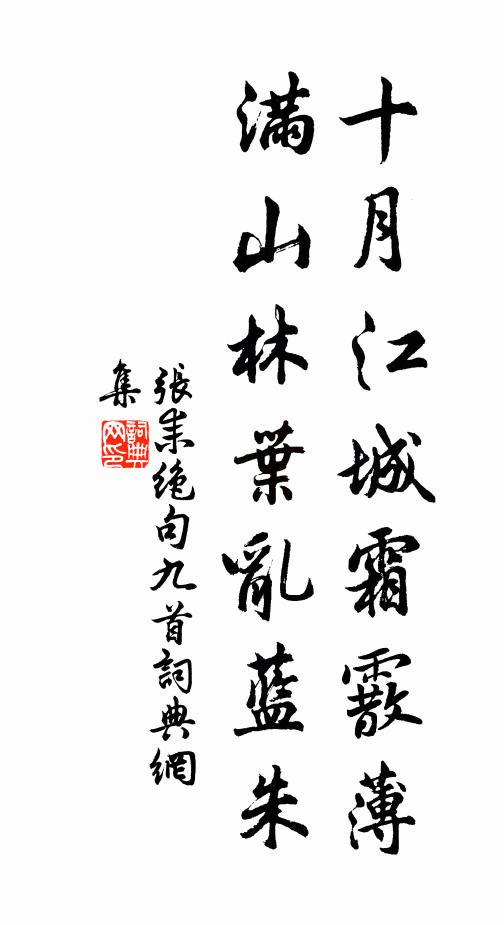 十月江城霜霰薄
滿山林葉亂藍朱
張耒絶句九首詞典網
集
詞典网印